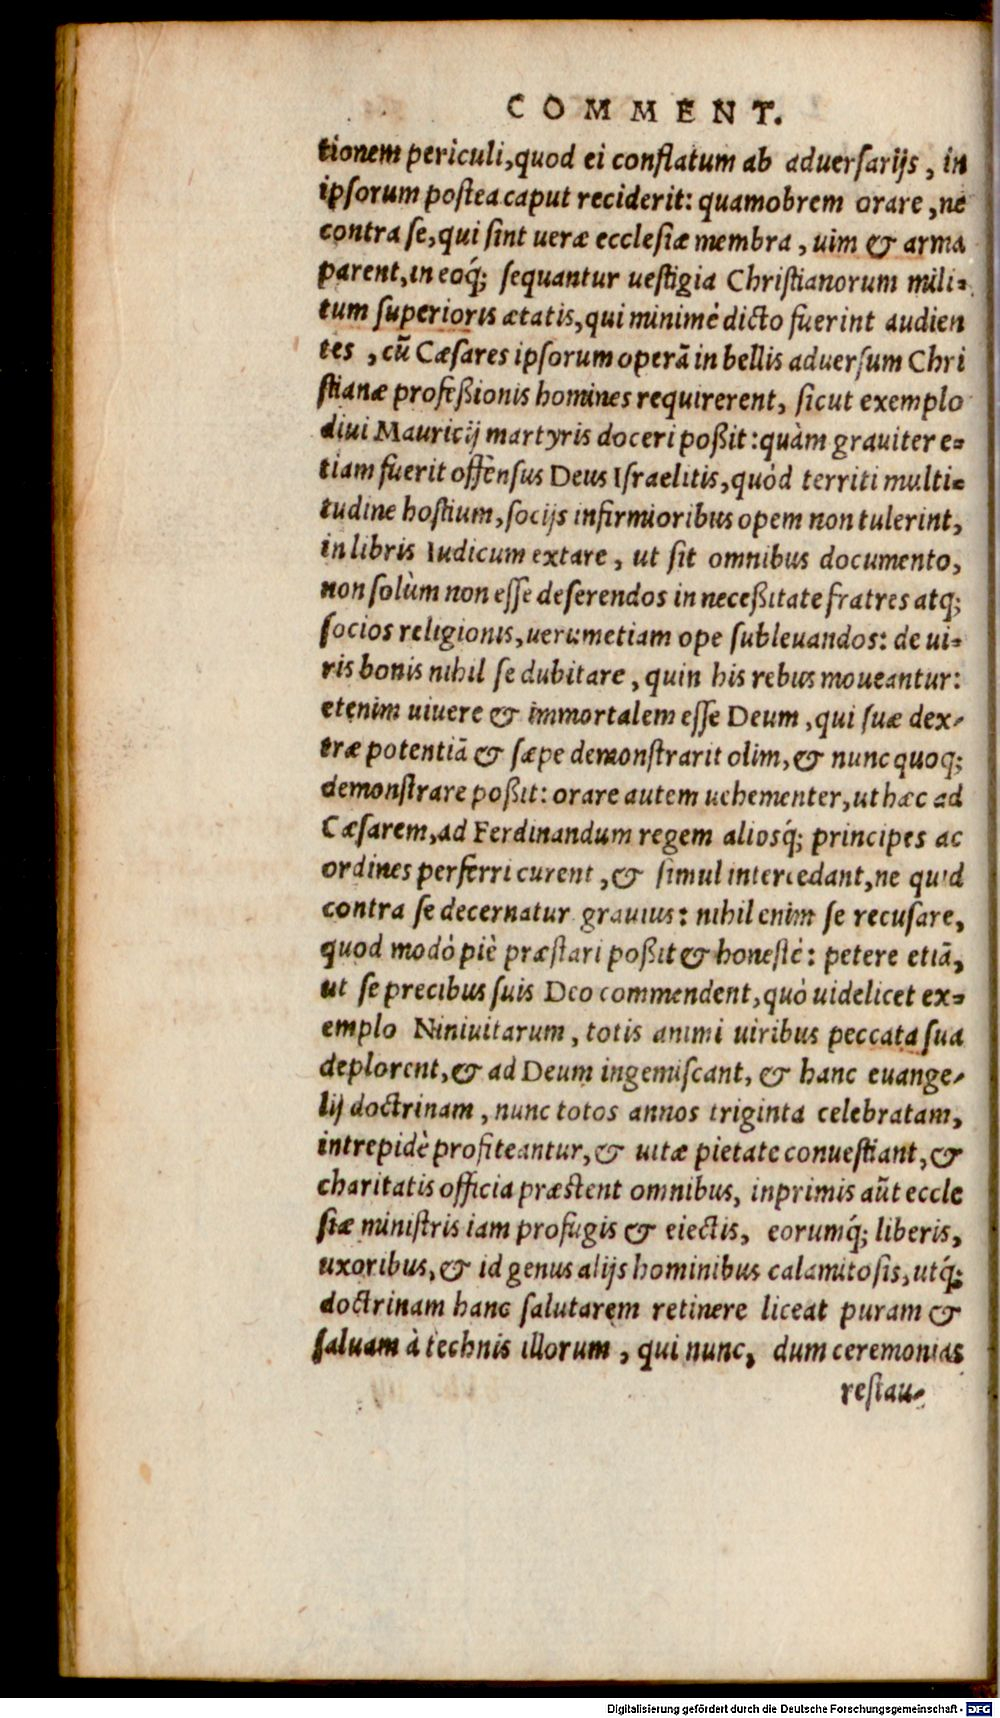 COMMENT.
tionem periculi, quod ei conflatum ab adversarijs, in
ipsorum postea caput reciderit: quamobrem orare, ne
contra se, qui sint ueræ ecclesiæ membra, uim & arma
parent, in eoq́; sequantur uestigia Christianorum mili-
tum superioris ætatis, qui minimè dicto fuerint audien
tes, cũ Cæsares ipsorum operã in bellis aduersum Chri
stianæ profeßionis homines requirerent, sicut exemplo
diui Mauricij martyris doceri poßit: quàm grauiter e-
tiam fuerit offensus Deus Israelitis, quòd territi multi-
tudine hostium, socijs infirmioribus opem non tulerint,
in libris Iudicum extare, ut sit omnibus documento,
non solùm non esse deserendos in neceßitate fratres atq;
socios religionis, uerumetiam ope subleuandos: de ui-
ris bonis nihil se dubitare, quin his rebus moueantur:
etenim uiuere & immortalem esse Deum, qui suæ dex-
træ potentiã & sæpe demonstrarit olim, & nunc quoq;
demonstrare poßit: orare autem uehementer, ut hæc ad
Cæsarem, ad Ferdinandum regem aliosq́; principes ac
ordines perferri curent, & simul intercedant, ne quid
contra se decernatur grauius: nihil enim se recusare,
quod modò piè præstari poßit & honestè: petere etiã,
ut se precibus suis Deo commendent, quò uidelicet ex-
emplo Niniuitarum, totis animi uiribus peccata sua
deplorent, & ad Deum ingemiscant, & hanc euange-
lij doctrinam, nunc totos annos triginta celebratam,
intrepidè profiteantur, & uitæ pietate conuestiant, &
charitatis officia præstent omnibus, inprimis aũt eccle
siæ ministris iam profugis & eiectis, eorumq́; liberis,
uxoribus, & id genus alijs hominibus calamitosis, utq́;
doctrinam hanc salutarem retinere liceat puram &
saluam à technis illorum, qui nunc, dum ceremonias
restau-
Digitalisierung gefördert durch die Deutsche Forschungsgemeinschaft - DFG